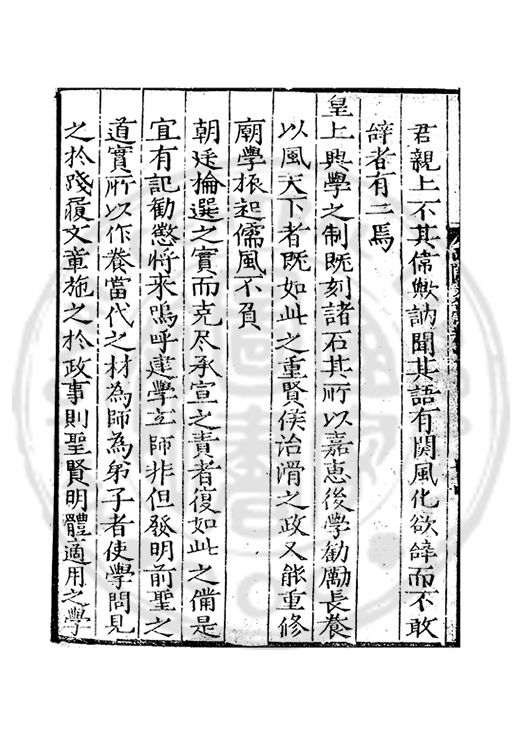 君親上不其偉歟訥聞其語有関風化欲辝而不敢
辝者有二焉
皇上興學之制既刻諸石其所以嘉恵後學勸勵長養
以風天下者既如此之重賢侯治滑之政又能重修
廟學振起儒風不負
朝廷掄選之實而克尽承宣之責者復如此之備是
宜有記勸懲將來嗚呼建學立師非但發明前聖之
道實所以作養當代之材為師為弟子者使學問見
之於踐履文章施之於政事則聖賢明體適用之學